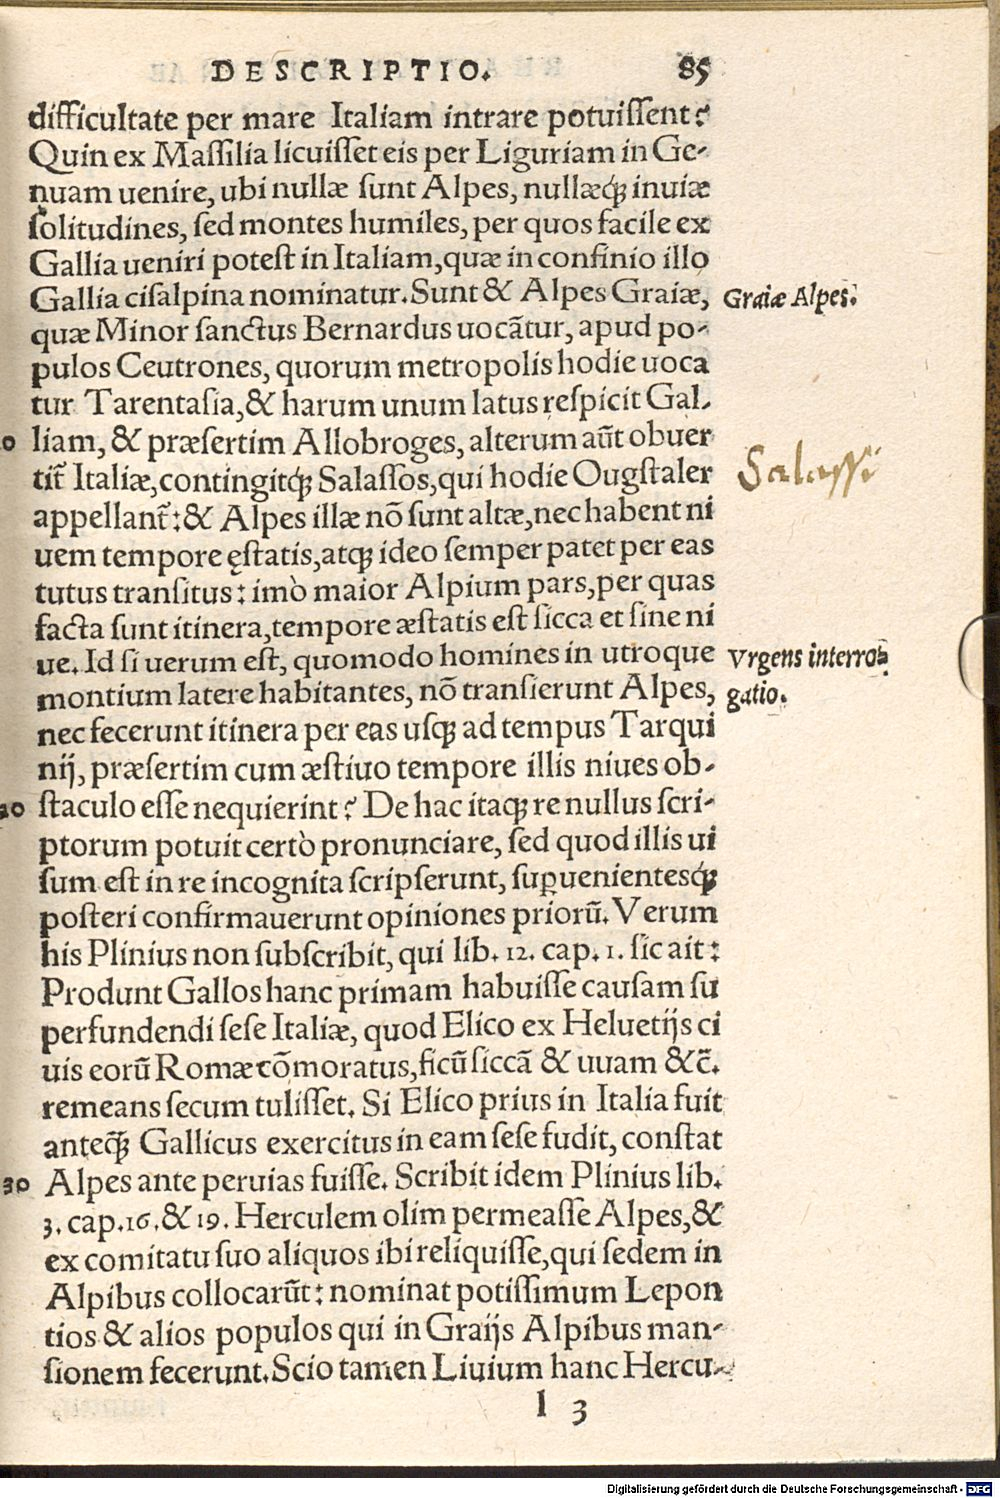 DESCRIPTIO. 85
difficultate per mare Italiam intrare potuiſſent?
Quin ex Maſſilia licuiſſet eis per Liguriam in Ge-
nuam uenire, ubi nullæ ſunt Alpes, nullæq́ꝫ inuiæ
ſolitudines, ſed montes humiles, per quos facile ex
Gallia ueniri poteſt in Italiam, quæ in confinio illo
Gallia ciſalpina nominatur. Sunt & Alpes Graiæ,
Graiæ Alpes.
quæ Minor ſanctus Bernardus uocãtur, apud po-
pulos Ceutrones, quorum metropolis hodie uoca
tur Tarentaſia, & harum unum latus reſpicit Gal-
liam, & præſertim Allobroges, alterum aũt obuer
tit̃ Italiæ, contingitq́ꝫ Salaſſos, qui hodie Ougſtaler
Salaſſi
appellant̃: & Alpes illæ nõ ſunt altæ, nec habent ni
uem tempore ęſtatis, atqꝫ ideo ſemper patet per eas
tutus tranſitus: imò maior Alpium pars, per quas
facta ſunt itinera, tempore æſtatis eſt ſicca et ſine ni
ue. Id ſi uerum eſt, quomodo homines in utroque
Vrgens interro-
montium latere habitantes, nõ tranſierunt Alpes,
gatio.
nec fecerunt itinera per eas uſqꝫ ad tempus Tarqui
nij, præſertim cum æſtiuo tempore illis niues ob-
20 ſtaculo eſſe nequierint? De hac itaqꝫ re nullus ſcri-
ptorum potuit certò pronunciare, ſed quod illis ui
ſum eſt in re incognita ſcripſerunt, suꝑuenientesq́ꝫ
poſteri confirmauerunt opiniones priorũ. Verum
his Plinius non ſubſcribit, qui lib. 12. cap. 1. ſic ait:
Produnt Gallos hanc primam habuiſſe cauſam ſu
perfundendi ſeſe Italiæ, quod Elico ex Heluetijs ci
uis eorũ Romæ cõmoratus, ficũ ſiccã & uuam &c̃.
remeans ſecum tuliſſet. Si Elico prius in Italia fuit
anteq̃ꝫ Gallicus exercitus in eam ſeſe fudit, conſtat
30 Alpes ante peruias fuiſſe. Scribit idem Plinius lib.
3. cap. 16. & 19. Herculem olim permeaſſe Alpes, &
ex comitatu ſuo aliquos ibi reliquiſſe, qui ſedem in
Alpibus collocarũt: nominat potiſſimum Lepon
tios & alios populos qui in Graijs Alpibus man-
ſionem fecerunt. Scio tamen Liuium hanc Hercu-
l 3
Digitalisierung gefördert durch die Deutsche Forschungsgemeinschaft - DFG